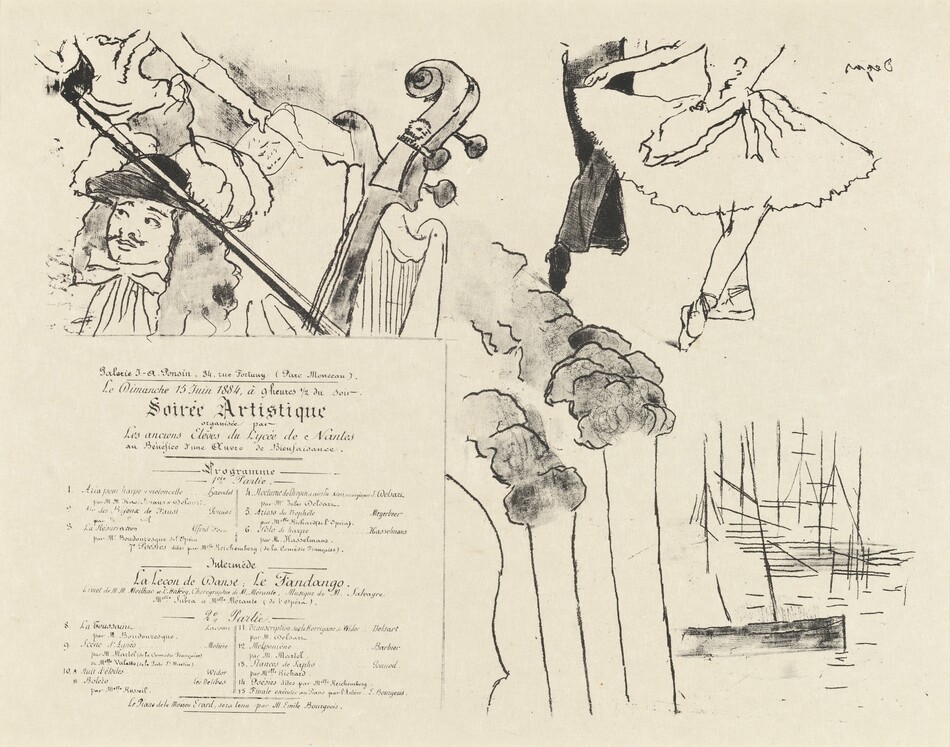 Degas
Galerie J-A. Ponsin, 34, rue Fortuny (Parc Monceau).
Le Dimanche 15 Juin 1884, à 9 heures ½ du soir
Soirée Artistique
organisée par
Les anciens Elèves du Lycée de Nantes
au Bénéfice d'une Œuvre de Bienfaisance.
Programme
1ère Partie.
1. Aria pour harpe & violoncelle Haendel
par M.M.
des Bijoux de Faust Gounod
par
3. La Réservation
par Mr Boudouresque de l'Opéra
4. Nocturne de Chopin Delsart
par Mr Jules Delsart.
5. Arioso du Prophète Meyerbeer
par Melle Richard (de l'Opéra).
6. Solo de harpe Hasselmans
par M. Hasselmans.
7. Poésies dites par Melle Reichemberg (de la Comédie Française).
Intermède
La Leçon de Danse; Le Fandango.
Livret de M.M. Meilhac et L. Halévy, Chorégraphie de M. Mérante, Musique de M. Salvayre.
Melle Subra & Melle Mérante (de l'opéra).
2e Partie.
8. La Toussaint Lacome
par M. Boudouresque.
9. Scène d'Agnès Molière
par M. Martel (de la Comédie Française)
& Melle (de la Porte St Martin)
10. A Nuit d'étoiles Widor
B Boléro Léo Delibes
par Melle
11. Transcription sur la Korrigane de Widor Delsart
par M. Delsart
12. Melpomène Barbier
par M. Martel
13. Stances de Sapho Gounod
par Melle Richard
14. Poésies dites par Melle Reichemberg.
15. Finale exécuté au Piano par l'Auteur. E. Bourgeois.
Le Piano de la Maison Erard, sera tenu par M. Emile Bourgeois.